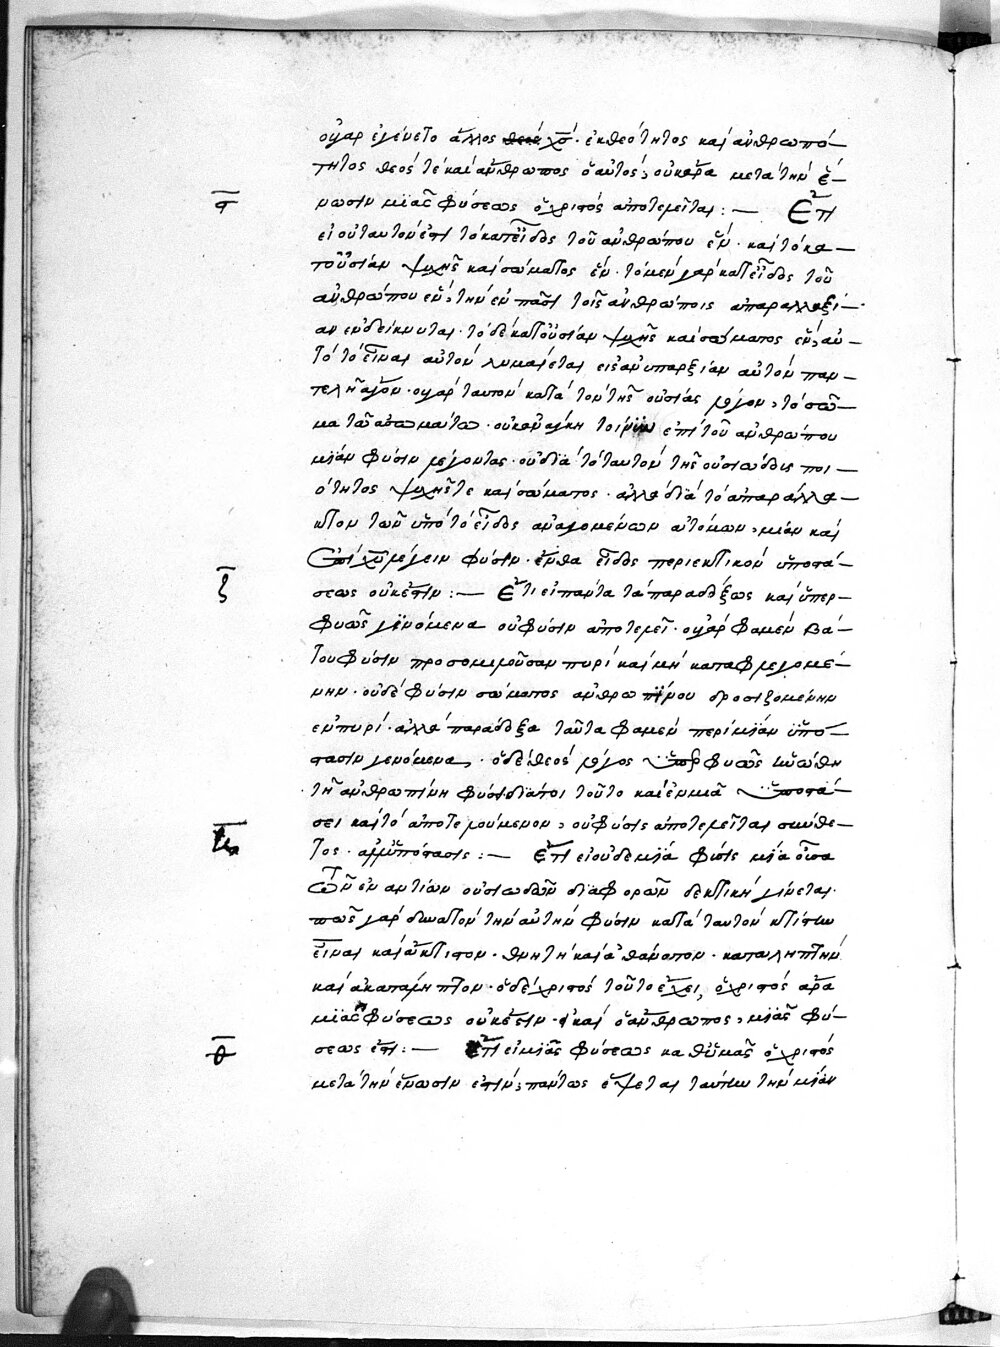 οὐ γὰρ ἐγένετο ἄλλος χς· ἐκ θεότητος καὶ ἀνθρωπό-
τητος θεός τε καὶ ἄνθρωπος ὁ αὐτός, οὐκ ἄρα μετὰ τὴν ἕ-
ς νωσιν μιᾶς φύσεως ὁ χριστός ἀποτελεῖται:— Ἔτι
εἰ οὐ ταυτόν ἐστι τὸ κατ' εἶδος τοῦ ἀνθρώπου ἕν· καὶ τὸ κα-
τ' οὐσίαν ψυχῆς καὶ σώματος ἕν· τὸ μὲν γὰρ κατ' εἶδος τοῦ
ἀνθρώπου ἕν, τὴν ἐν πᾶσι τοῖς ἀνθρώποις ἀπαραλλαξί-
αν ἐνδείκνυται· τὸ δὲ κατ' οὐσίαν ψυχῆς καὶ σώματος ἕν, αὐ-
τὸ τὸ εἶναι αὐτῶν λυμαίνεται εἰς ἀνυπαρξίαν αὐτῶν παν-
τελῆ ἄγον· οὐ γὰρ ταυτὸν κατὰ τὸν τῆς οὐσίας λόγον, τὸ σῶ-
μα τῶ ἀσωμάτω· οὐκ ἀνάγκη τοίνυν ἐπὶ τοῦ ἀνθρώπου
μίαν φύσιν λέγοντας· οὐ διὰ τὸ ταυτὸν τῆς οὐσιώδους ποι-
ότητος ψυχῆς τε καὶ σώματος· ἀλλὰ διὰ τὸ ἀπαράλλα-
κτον τῶν ὑπὸ τὸ εἶδος ἀναγομένων ἀτόμων, μίαν καὶ
ἐπὶ χυ λέγειν φύσιν· ἔνθα εἶδος περιεκτικὸν ὑποστά-
ζ σεως οὐκ ἔστιν:— Ἔτι εἰ πάντα τὰ παραδόξως καὶ ὑπερ-
φυῶς γινόμενα οὐ φύσιν ἀποτελεῖ· οὐ γάρ φαμεν βά-
του φύσιν προσομιλοῦσαν πυρὶ καὶ μὴ καταφλεγομέ-
νην· οὐδὲ φύσιν σώματος ἀνθρωπίνου δροσιζομένην
ἐν πυρί· ἀλλὰ παράδοξα ταῦτα φαμεν περὶ μίαν ὑπό-
στασιν γενόμενα· ὁ δὲ θεὸς λόγος ὑπερφυῶς ἡνώθη
τῆ ἀνθρωπίνη φύσι διά τοι τοῦτο καὶ ἐν μιᾶ ὑποστά-
η σει καὶ τὸ ἀποτελούμενον, οὐ φύσις ἀποτελεῖται σύνθε-
τος· ἀλλ' ὑπόστασις:— Ἔτι εἰ οὐδεμία φύσις μία οὖσα
τῶν ἐναντίων οὐσιωδῶν διαφορῶν δεκτικὴ γίνεται·
πῶς γὰρ δυνατὸν τὴν αὐτὴν φύσιν κατὰ ταυτὸν κτίστην
εἶναι καὶ ἄκτιστον· θνητὴν καὶ ἀθάνατον· καταληπτὴν
καὶ ἀκατάληπτον· ὁ δὲ χριστός τοῦτο ἔχει, ὁ χριστός ἄρα
μιᾶς φύσεως οὐκ ἔστιν· καὶ ὁ ἄνθρωπος, μιᾶς φύ-
θ σεως ἐστι:— Ἔτι εἰ μιᾶς φύσεως καθ' ὑμᾶς ὁ χριστός
μετὰ τὴν ἕνωσιν ἐστιν, πάντως ἕψεται ταύτην τὴν μίαν